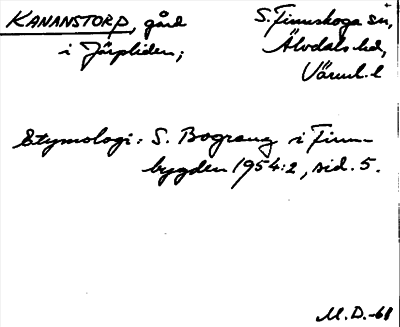 KANANSTORP, gård
i Järpliden;
S. Finnskoga sn,
Älvdals hd,
Värml. l
Etymologi: S. Bograng i Finn-
bygden 1954:2, sid. 5.
M.D.-68